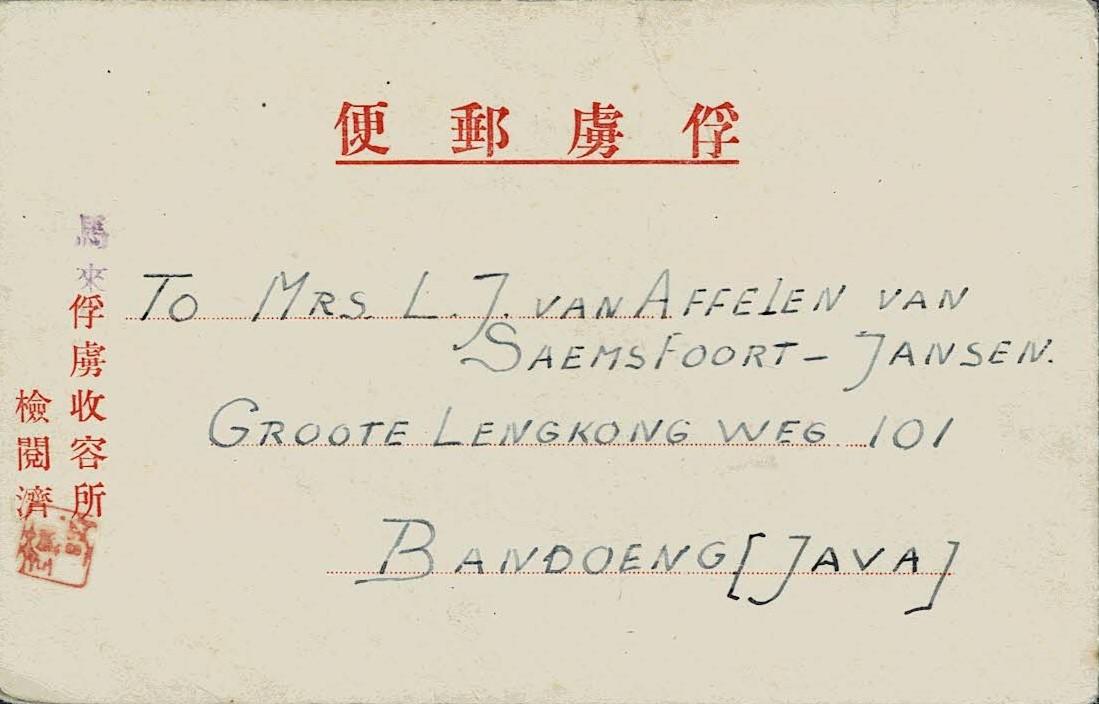 俘虜郵便
馬來俘虜收容所
檢閱濟
To MRS. L. J. VAN AFFELEN VAN
SAEMSFOORT – JANSEN.
GROOTE LENGKONG WEG 101
BANDOENG [JAVA]